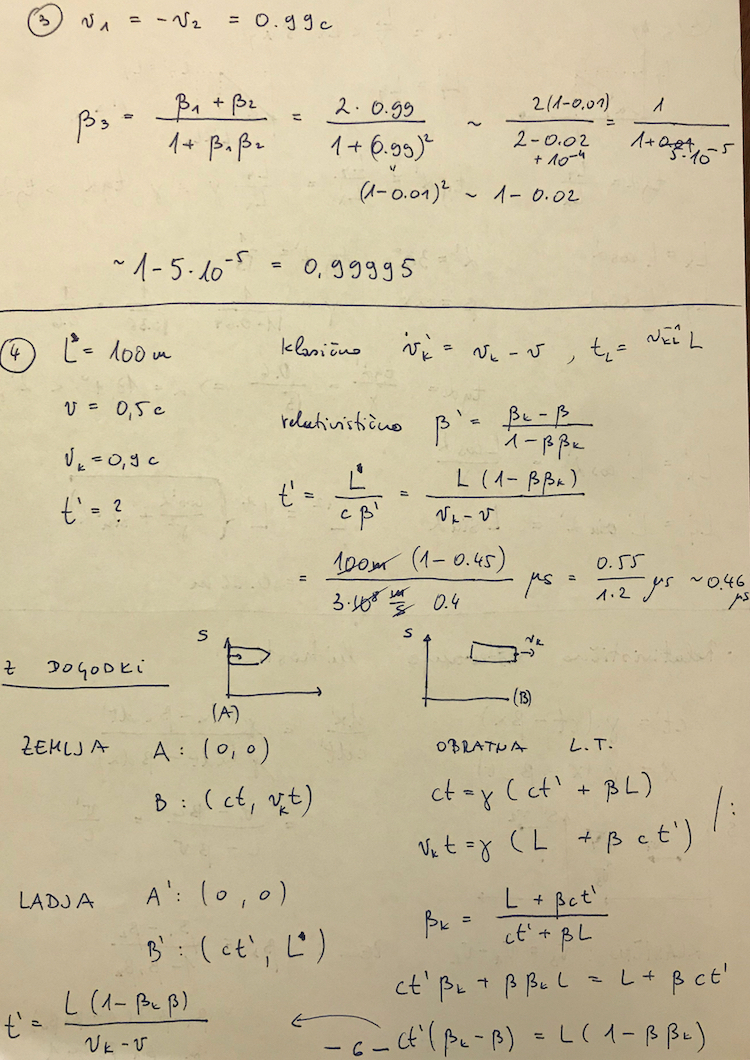 ③ v₁ = -v₂ = 0.99c
β₃ = (β₁ + β₂)/(1 + β₁β₂) = (2 · 0.99)/(1 + (0.99)²) ~ 2(1-0.01)/(2-0.02 + 10⁻⁴) = 1/(1+ 5·10⁻⁵)
(1-0.01)² ~ 1-0.02
~ 1-5·10⁻⁵ = 0,99995
④ L = 100 m klasično v_k' = v_k - v , t_L =
v = 0,5c relativistično β' = (β_k - β)/(1 - ββ_k)
v_k = 0,9c
t' = ? t' = L/(cβ') = L(1-ββ_k)/(v_k - v)
= 100m (1-0.45)/(3·10⁸ m/s 0.4) μs = 0.55/1.2 μs ~ 0.46 μs
Z DOGODKI S (A) S v_k (B)
ZEMLJA A : (0, 0) OBRATNA L.T.
B : (ct, v_k t) ct = γ (ct' + βL)
v_k t = γ (L + β ct') /:
LADJA A' : (0, 0)
B' : (ct', L) β_k = (L + βct')/(ct' + βL)
ct'β_k + ββ_k L = L + β ct'
t' = L(1-β_kβ)/(v_k - v) ct'(β_k - β) = L(1 - ββ_k)
- 6 -